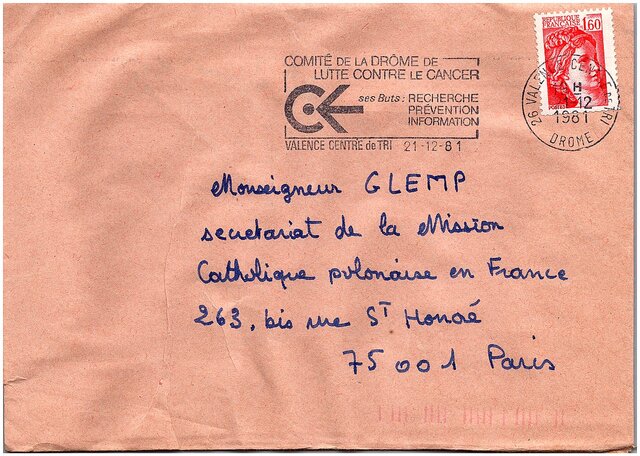 COMITÉ DE LA DRÔME DE
LUTTE CONTRE LE CANCER
ses Buts : RECHERCHE
PRÉVENTION
INFORMATION
VALENCE CENTRE de TRI 21-12-81
REPUBLIQUE
FRANCAISE 1,60
POSTES
26 VALENCE CENTRE TRI
H
12
1981
DROME
Monseigneur GLEMP
secretariat de la Mission
Catholique polonaise en France
263, bis rue St Honoré
75001 Paris